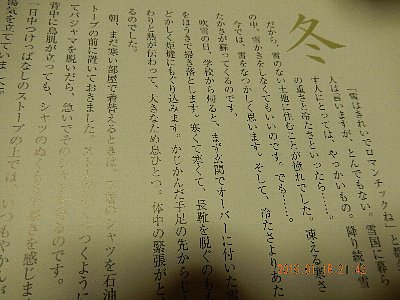 冬
「雪はきれいでロマンチックね」と都
人は言いますが、とんでもない。雪国に暮ら
す人にとっては、やっかいもの。降り続く雪
の重さと冷たさといったら……。凍える寒さ
だから、雪のない土地に住むことが憧れでした。
の中、雪かきをしなくてもいいのです。でも……。
今では、雪をなつかしく思います。そして、冷たさよりあた
たかさが蘇ってくるのです。
吹雪の日、学校から帰ると、まず玄関でオーバーに付いた雪
をほうきで掃き落とします。寒くて寒くて、長靴を脱ぐのも
どかしく炬燵にもぐり込みます。かじかんだ手足の先からじ
わりと熱が伝わって、大きなため息ひとつ。体中の緊張がと
るのでした。
朝、まだ寒い部屋で着替えるときは、下着のシャツを石油
トーブの前に置いておきました。スト つくように
てパジャマを脱いだら、急いでそのシャツを着るのです。
背中に鳥肌が立っても、シャツのぬく さを感じま
一日中つけっぱなしのストーブの上では、いつもやかんが
湯気を立てていました。
2015 01 18 21:42